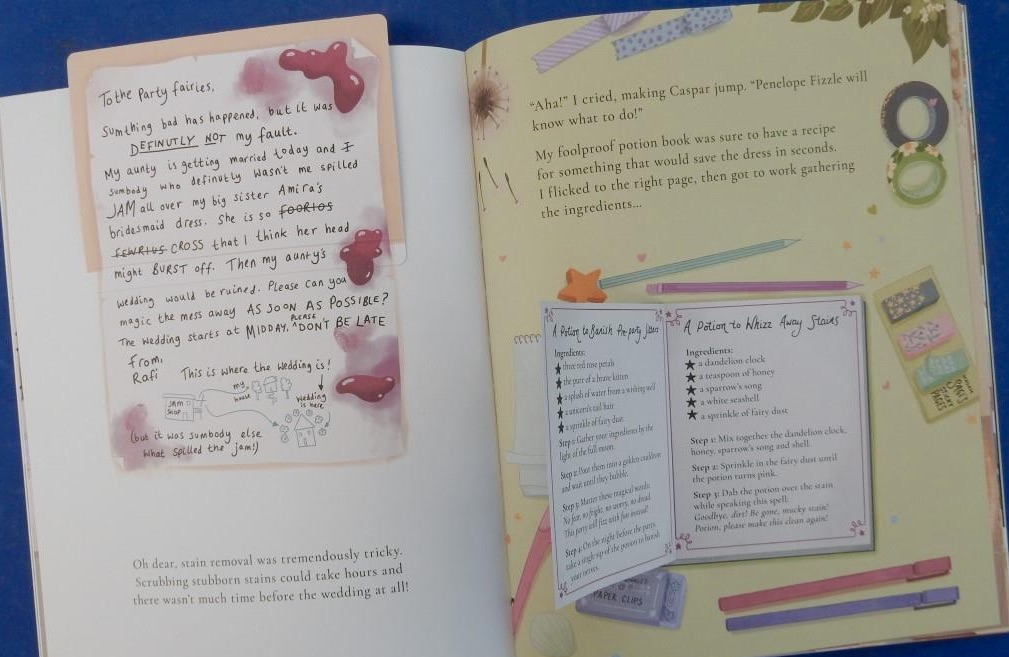 To the Party fairies,
Sumthing bad has happened, but it was
DEFINUTLY NOT my fault.
My aunty is getting married today and I
sumbody who definutly wasn't me spilled
JAM all over my big sister Amira's
bridesmaid dress. She is so FOORIOS
FEWRIUS CROSS that I think her head
might BURST off. Then my aunty's
wedding would be ruined. Please can you
magic the mess away AS SOON AS POSSIBLE?
The wedding starts at MIDDAY. PLEASE DON'T BE LATE
From,
Rafi
This is where the wedding is!
my house
JAM SHOP
Wedding is here
(but it was sumbody else
what spilled the jam!)
Oh dear, stain removal was tremendously tricky.
Scrubbing stubborn stains could take hours and
there wasn't much time before the wedding at all!
"Aha!" I cried, making Caspar jump. "Penelope Fizzle will
know what to do!"
My foolproof potion book was sure to have a recipe
for something that would save the dress in seconds.
I flicked to the right page, then got to work gathering
the ingredients...
A Potion to Banish Pre-party Jitters
Ingredients:
three red rose petals
the purr of a brave kitten
a splash of water from a wishing well
a unicorn's tail hair
a sprinkle of fairy dust
Step 1: Gather your ingredients by the
light of the full moon.
Step 2: Pour them into a golden cauldron
and wait until they bubble.
Step 3: Mutter these magical words:
No fear, no fright, no worry, no dread
This party will fizz with fun instead!
Step 4: On the night before the party,
take a single sip of the potion to banish
your nerves.
A Potion to Whizz Away Stains
Ingredients:
a dandelion clock
a teaspoon of honey
a sparrow's song
a white seashell
a sprinkle of fairy dust
Step 1: Mix together the dandelion clock,
honey, sparrow's song and shell.
Step 2: Sprinkle in the fairy dust until
the potion turns pink.
Step 3: Dab the potion over the stain
while speaking this spell:
Goodbye, dirt! Be gone, mucky stain!
Potion, please make this clean again!
PAGES
STICKY
PAGES
PAPER CLIPS